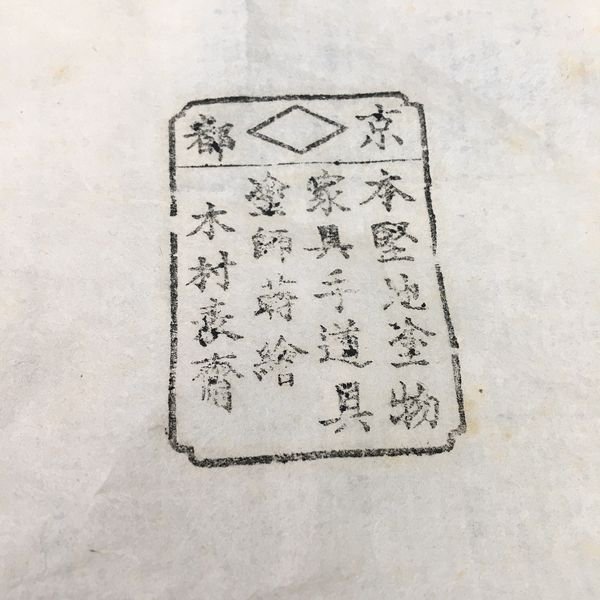 京都
本堅地塗物
家具手道具
塗師蒔絵
木村表斎